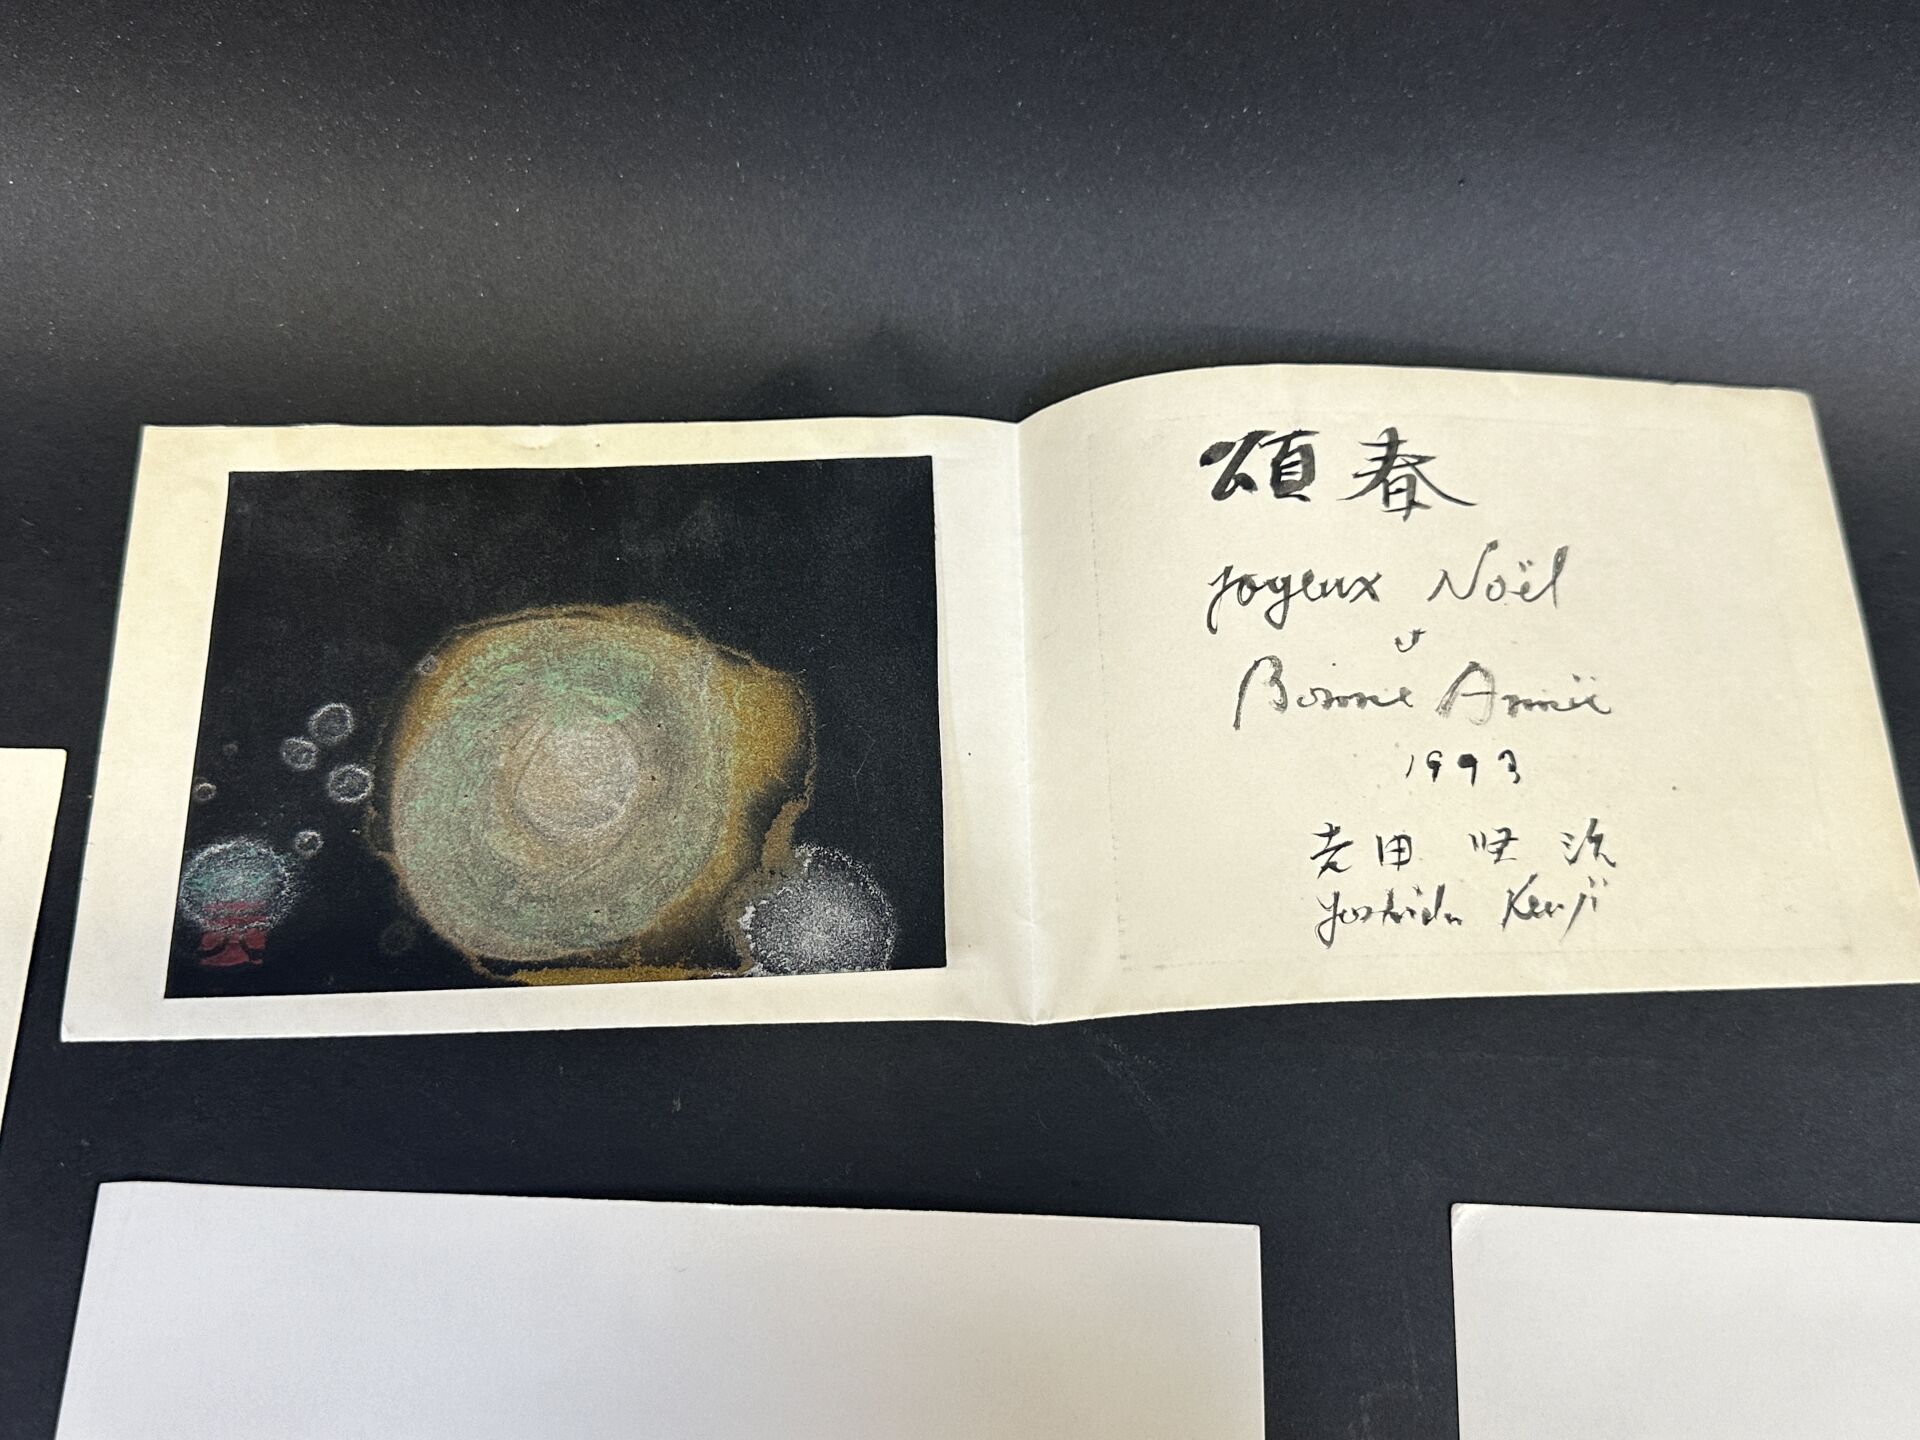 頌春
Joyeux Noël
et
Bonne Année
1993
吉田 堅治
Yoshida Kenji